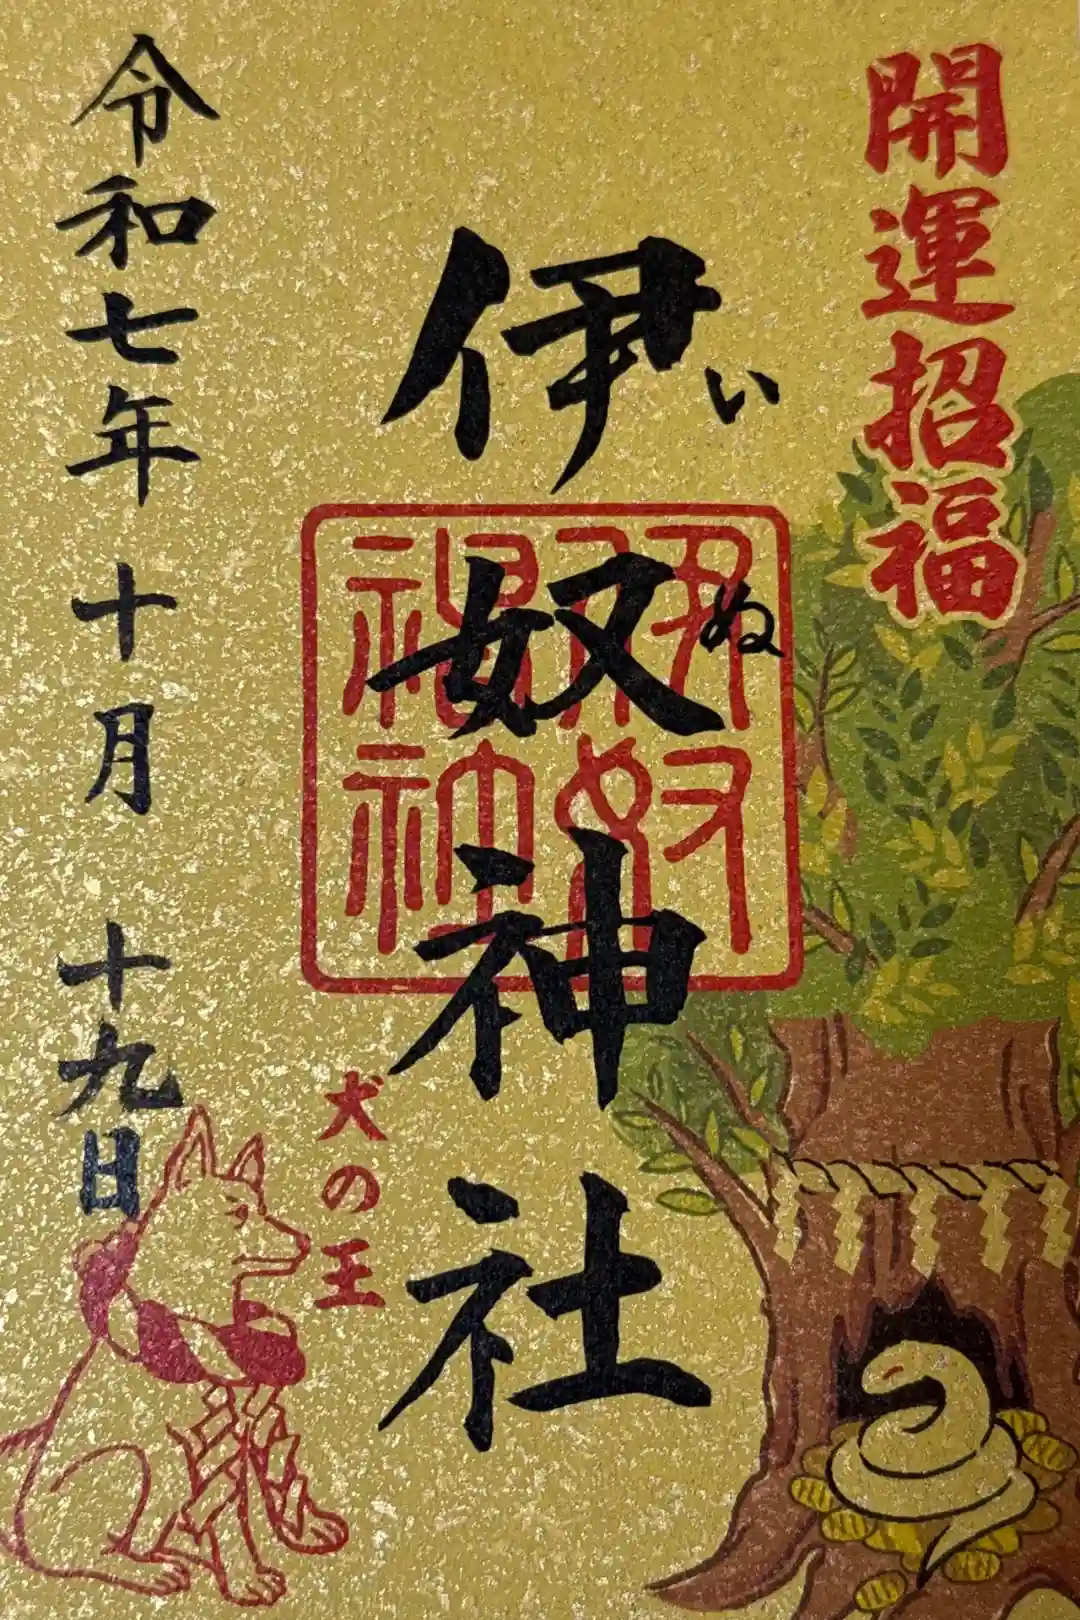 開運招福
伊奴神社
いぬ
伊奴
神社
犬の王
令和七年 十月 十九日